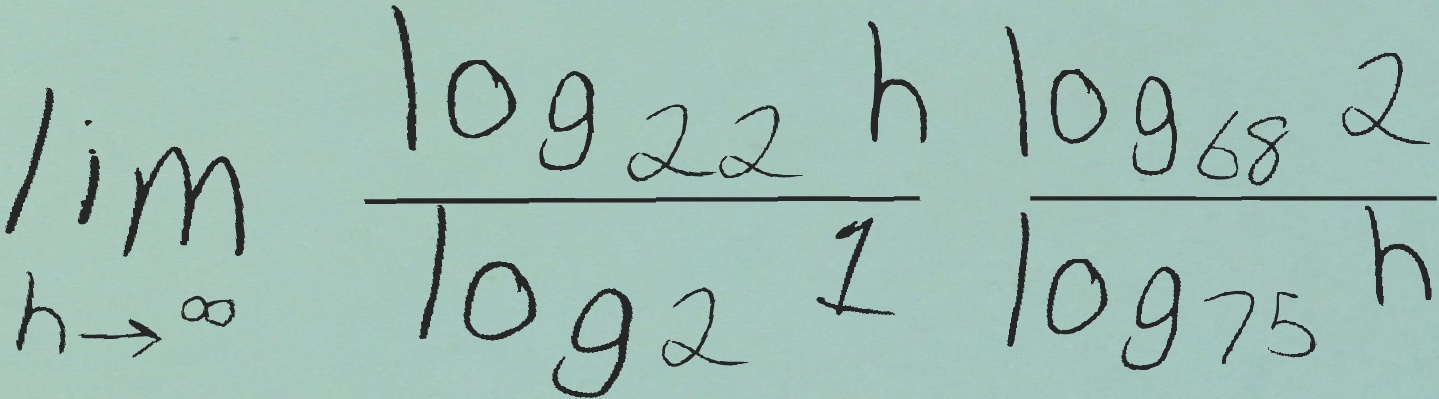 \lim_{h \to \infty} \frac{\log_{22} h}{\log_{2} 1} \frac{\log_{68} 2}{\log_{75} h}